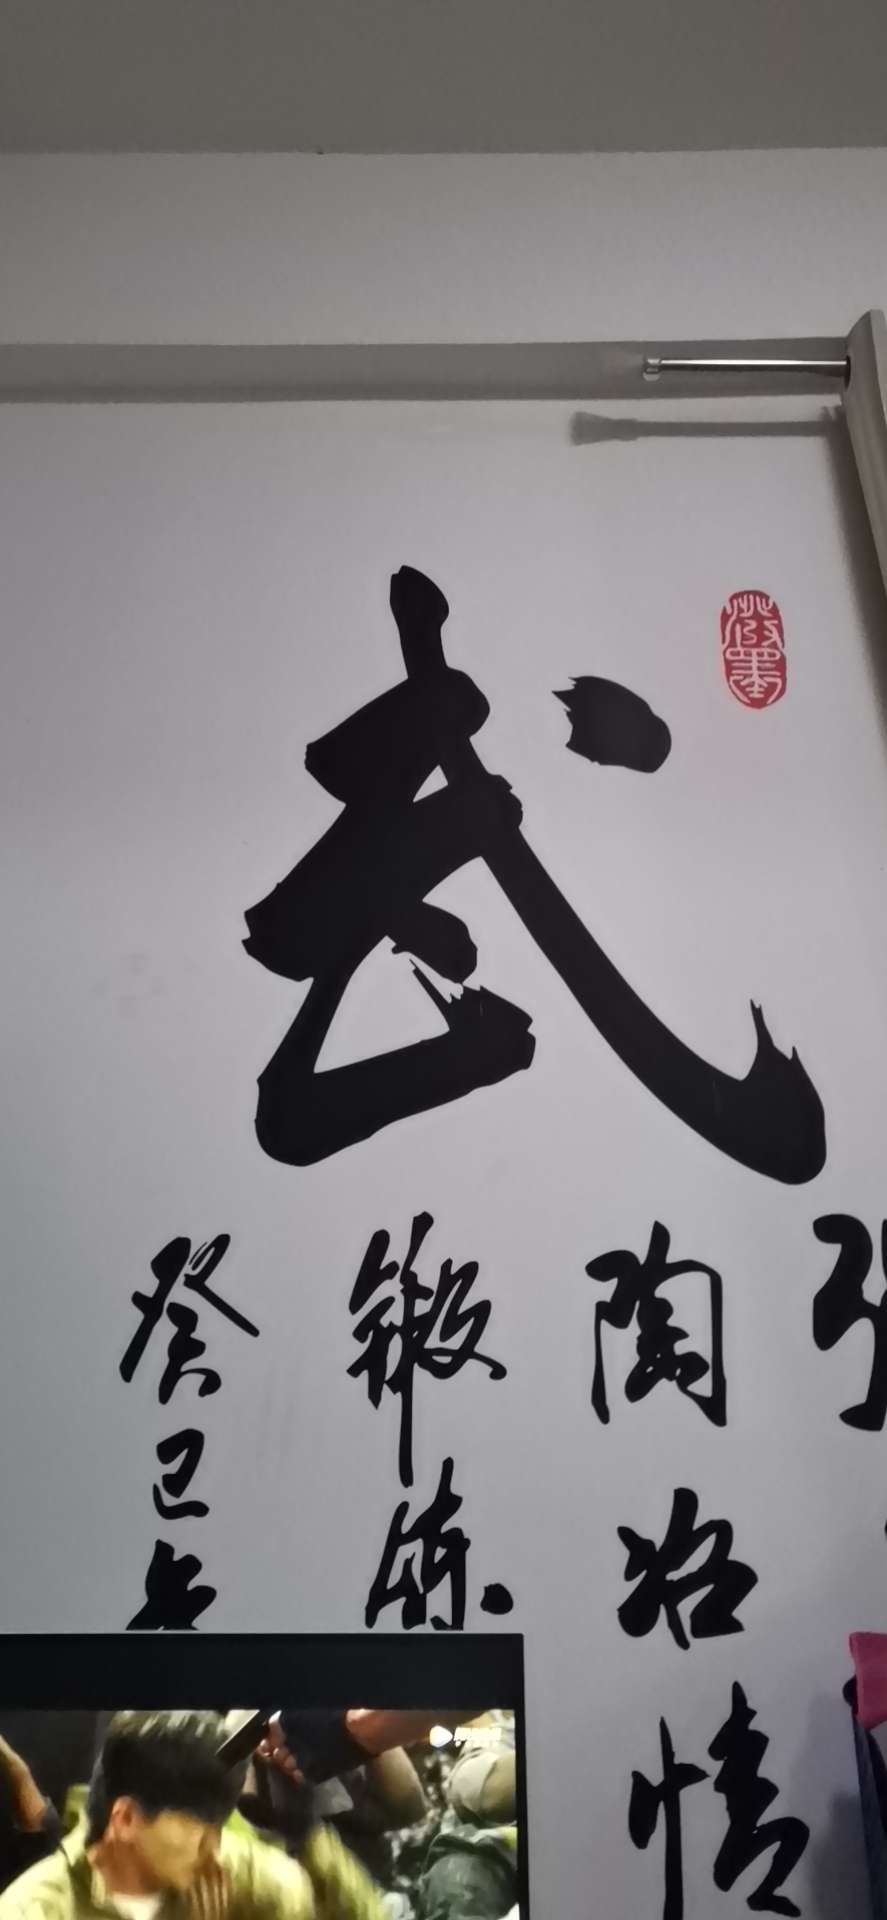 武
陶冶情
锻炼
癸巳